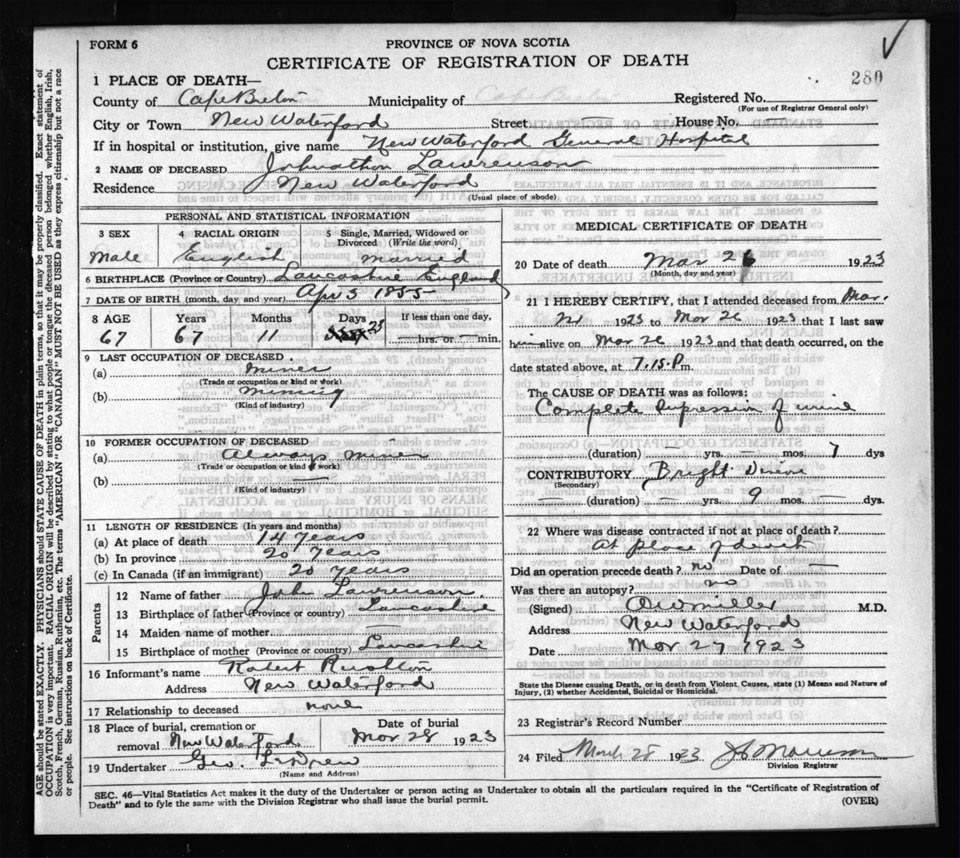 FORM 6
PROVINCE OF NOVA SCOTIA
CERTIFICATE OF REGISTRATION OF DEATH
280
1 PLACE OF DEATH—
County of Cape Breton Municipality of Cape Breton Registered No.
(For use of Registrar General only)
City or Town New Waterford Street — House No. —
If in hospital or institution, give name New Waterford General Hospital
2 NAME OF DECEASED Johnathon Lawrenson
Residence New Waterford
(Usual place of abode)
PERSONAL AND STATISTICAL INFORMATION
3 SEX 4 RACIAL ORIGIN 5 Single, Married, Widowed or Divorced (Write the word)
Male English Married
6 BIRTHPLACE (Province or Country) Lancashire England
7 DATE OF BIRTH (month, day and year) Apr 3 1855
8 AGE Years Months Days If less than one day,
67 67 11 23 — hrs. or — min.
9 LAST OCCUPATION OF DECEASED.
(a) miner
(Trade or occupation or kind or work)
(b) Mining
(Kind of industry)
10 FORMER OCCUPATION OF DECEASED
(a) Always miner
(Trade or occupation or kind of work)
(b) —
(Kind of industry)
11 LENGTH OF RESIDENCE (In years and months)
(a) At place of death 14 years
(b) In province 20 years
(c) In Canada (if an immigrant) 20 years
Parents
12 Name of father John Lawrenson
13 Birthplace of father (Province or country) Lancashire
14 Maiden name of mother —
15 Birthplace of mother (Province or Country) Lancashire
16 Informant's name Robert Rushton
Address New Waterford
17 Relationship to deceased none
18 Place of burial, cremation or removal New Waterford
Date of burial Mar 28 1923
19 Undertaker Geo.
(Name and Address)
MEDICAL CERTIFICATE OF DEATH
20 Date of death Mar 26 1923
(Month, day and year)
21 I HEREBY CERTIFY, that I attended deceased from Mar.
21 1923 to Mar 26 1923 that I last saw
him alive on Mar 26 1923 and that death occurred, on the
date stated above, at 7.15 P m.
The CAUSE OF DEATH was as follows:
Complete supression of urine
(duration) — yrs. — mos. 7 dys
CONTRIBUTORY Bright Disease
(Secondary)
— (duration) — yrs. 9 mos. — dys.
22 Where was disease contracted if not at place of death?
At place of death
Did an operation precede death? no Date of —
Was there an autopsy? no
(Signed) Miller M.D.
Address New Waterford
Date Mar 27 1923
State the Disease causing Death, or in death from Violent Causes, state (1) Means and Nature of
Injury, (2) whether Accidental, Suicidal or Homicidal.
23 Registrar's Record Number.
24 Filed March 28 1923
Division Registrar
SEC. 46—Vital Statistics Act makes it the duty of the Undertaker or person acting as Undertaker to obtain all the particulars required in the "Certificate of Registration of
Death" and to fyle the same with the Division Registrar who shall issue the burial permit.
(OVER)
AGE should be stated EXACTLY. PHYSICIANS should STATE CAUSE OF DEATH in plain terms, so that it may be properly classified. Exact statement of
OCCUPATION is very important. RACIAL ORIGIN will be described by stating to what people or tongue the deceased person belonged, whether English, Irish,
Scotch, French, German, Russian, Ruthenian, etc. The terms "AMERICAN" OR "CANADIAN" MUST NOT BE USED as they express citizenship but not a race
or people. See instructions on back of Certificate.